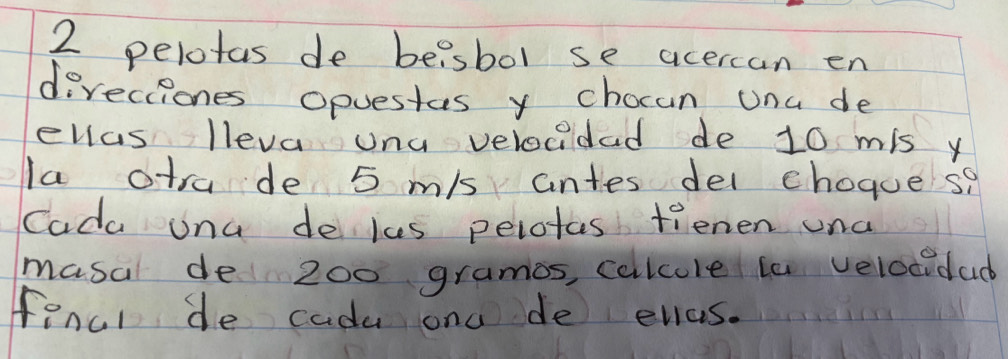 2 pelotas de beisbol se acercan en
direcciones opuestas y chocan una de
ellas lleva una velocidad de 10 m/s y
la otra de 5 m/s antes del choque si
cada una de las pelotas tienen una
masa de 200 gramos, calcule la velocidad
final de cada una de ellas.